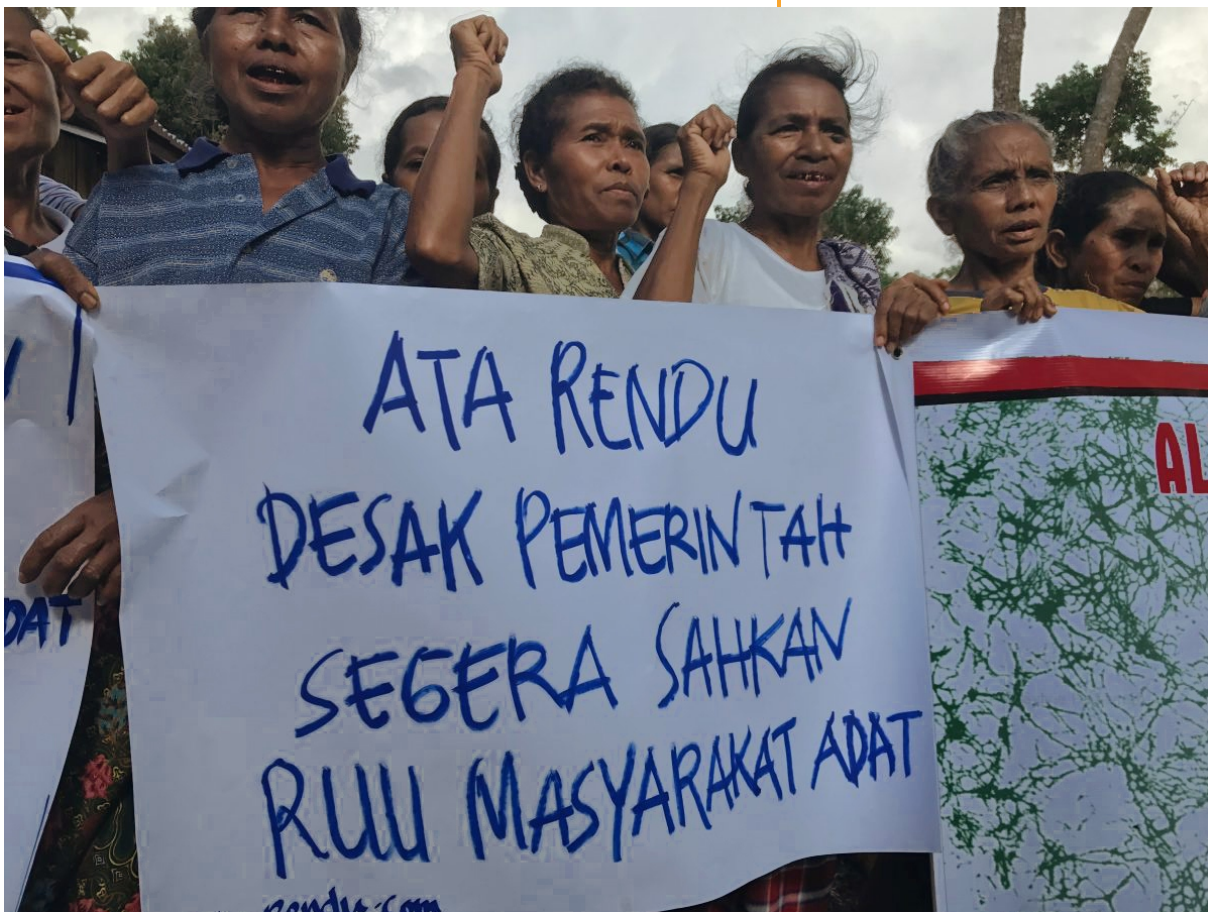 ATA RENDU
DESAK PEMERINTAH
SEGERA SAHKAN
RUU MASYARAKAT ADAT
rendu.com
DAT
AL